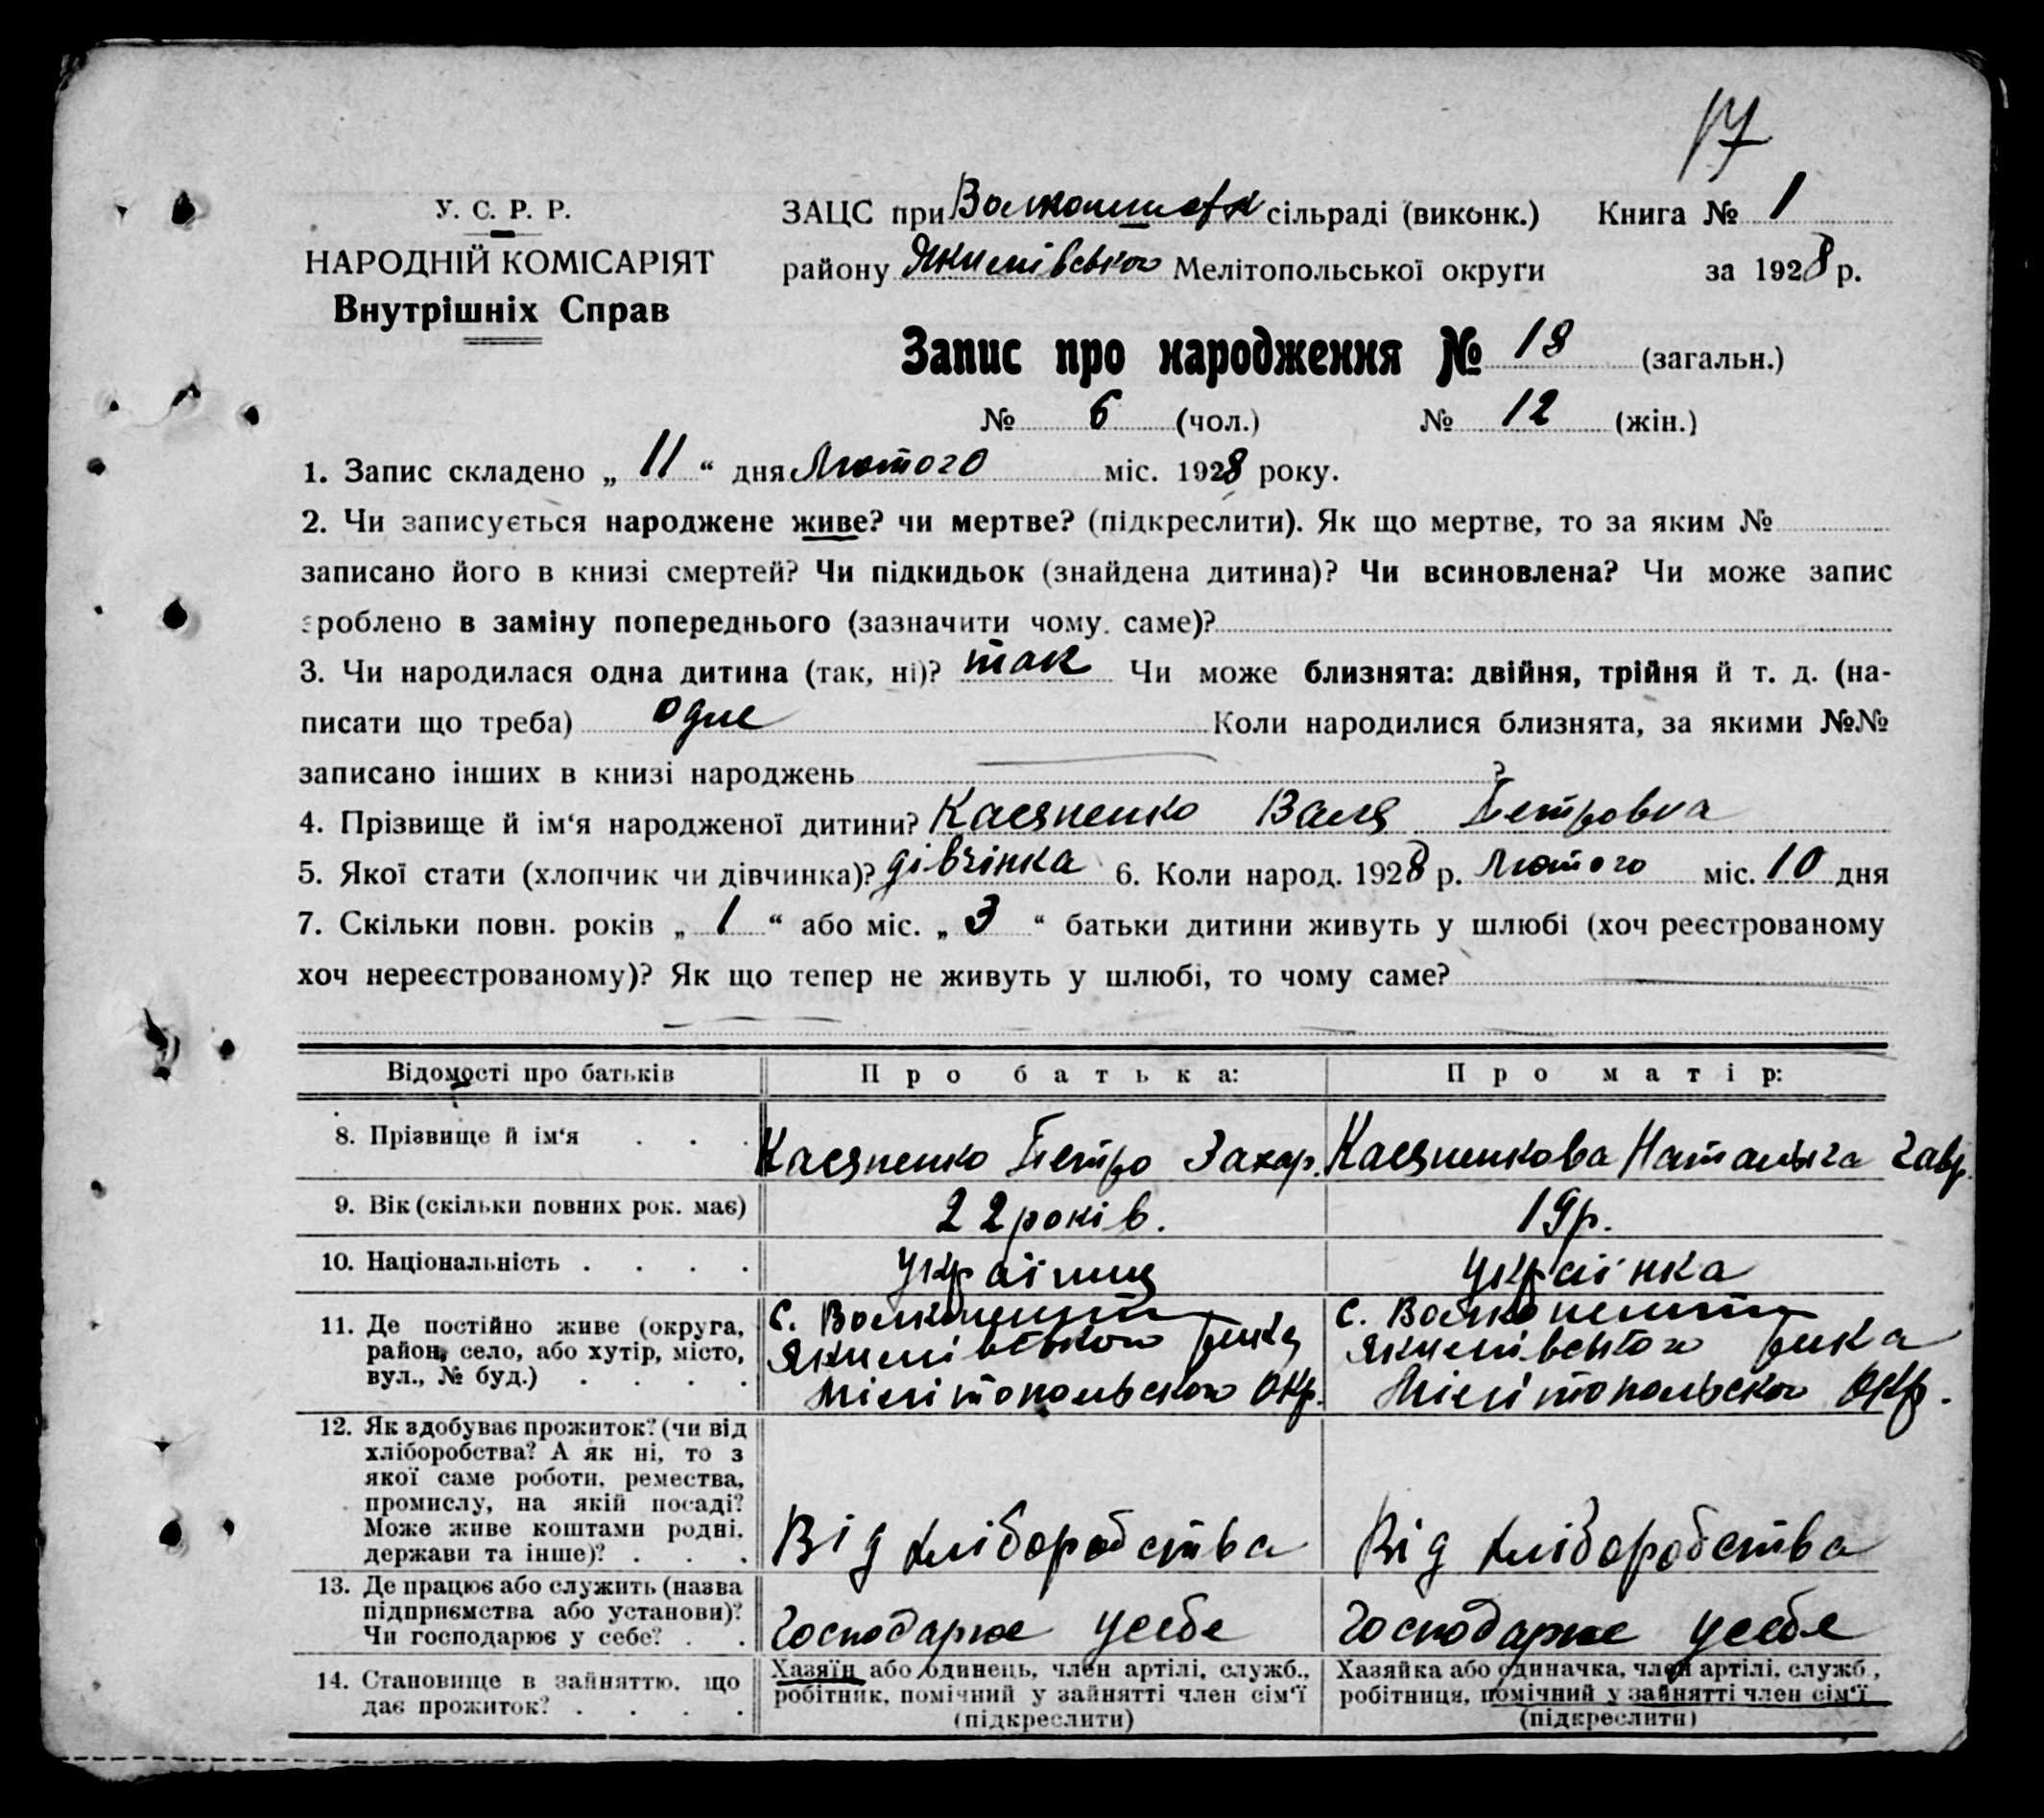 17
У. С. Р. Р.
НАРОДНІЙ КОМІСАРІЯТ
Внутрішніх Справ
ЗАЦС при сільраді (виконк.) Книга № 1
району Якимівського Мелітопольської округи за 1928 р.
Запис про народження № 18 (загальн.)
№ 6 (чол.) № 12 (жін.)
1. Запис складено „ 11 “ дня Лютого міс. 1928 року.
2. Чи записується народжене живе? чи мертве? (підкреслити). Як що мертве, то за яким №
записано його в книзі смертей? Чи підкидьок (знайдена дитина)? Чи всиновлена? Чи може запис
зроблено в заміну попереднього (зазначити чому. саме)?
3. Чи народилася одна дитина (так, ні)? так Чи може близнята: двійня, трійня й т. д. (на-
писати що треба) одне Коли народилися близнята, за якими №№
записано інших в книзі народжень ?
4. Прізвище й ім‘я народженої дитини? Касяненко Валя Петровна
5. Якої стати (хлопчик чи дівчинка)? дівчінка 6. Коли народ. 1928 р. Лютого міс. 10 дня
7. Скільки повн. років „ 1 “ або міс. „ 3 “ батьки дитини живуть у шлюбі (хоч реєстрованому
хоч нереєстрованому)? Як що тепер не живуть у шлюбі, то чому саме?
Відомості про батьків Про батька: Про матір:
8. Прізвище й ім‘я . . . Касяненко Петро Захар. Касяненкова Наталья Гавр.
9. Вік (скільки повних рок. має) 22 років. 19 р.
10. Національність . . . . українць українка
11. Де постійно живе (округа,
район, село, або хутір, місто,
вул., № буд.) . . . .
с.
Якимівського
Мілітопольского Окр.
с.
Якимівського
Мілітопольского Окр.
12. Як здобуває прожиток? (чи від
хліборобства? А як ні, то з
якої саме роботи, ремества,
промислу, на якій посаді?
Може живе коштами родні,
держави та інше)? . . .
Від хліборобства
Від хліборобства
13. Де працює або служить (назва
підприємства або установи)?
Чи господарює у себе? . .
Господарює усебе
Господарює усебе
14. Становище в зайняттю, що
дає прожиток? . . . .
Хазяїн або одинець, член артілі, служб.,
робітник, помічний у зайнятті член сім‘ї
(підкреслити)
Хазяйка або одиначка, член артілі, служб.,
робітниця, помічний у зайнятті член сім‘ї
(підкреслити)